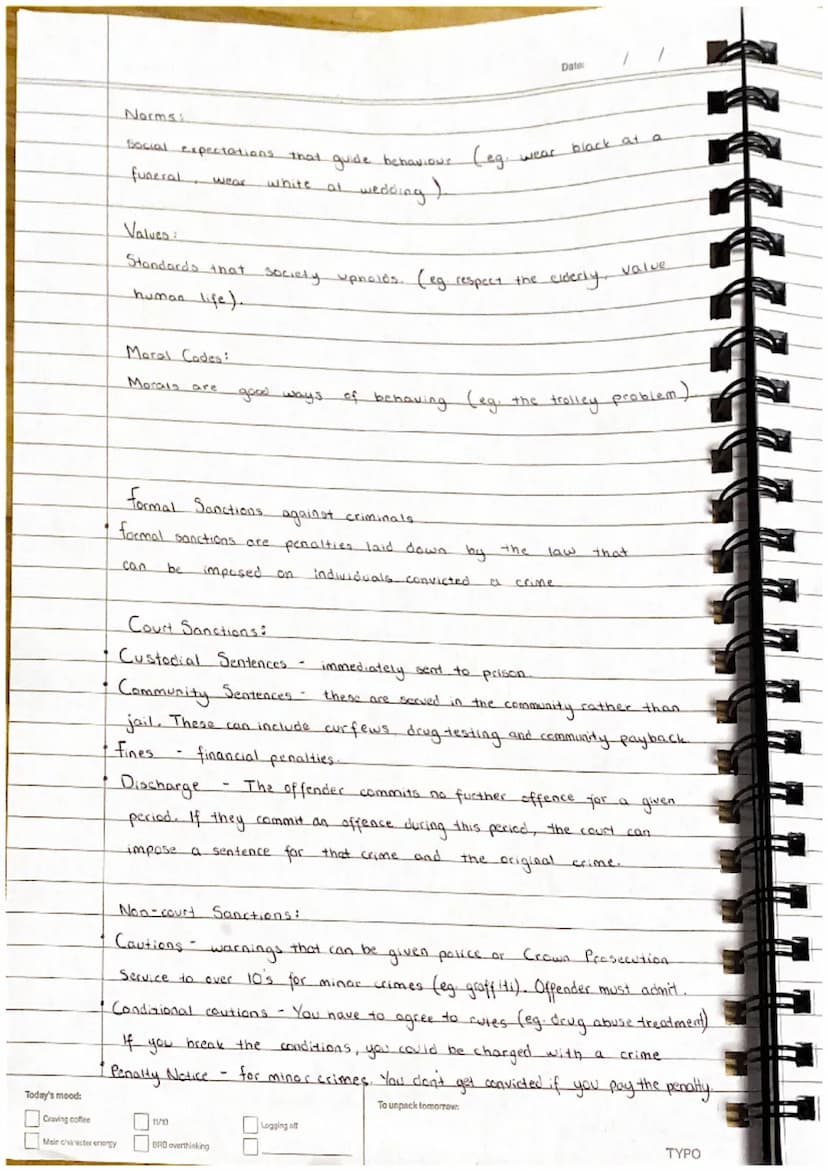 Date: / /
Norms:
Social expectations that guide behaviour (eg. wear black at a
funeral, wear white at wedding).
Values:
Standards that society upholds. (eg respect the elderly, value
human life).
Moral Codes:
Morals are good ways of behaving (eg. the trolley problem)
Formal Sanctions against criminals
• formal sanctions are penalties laid down by the law that
can be imposed on individuals convicted a crime
Court Sanctions:
• Custodial Sentences - immediately sent to prison.
• Community Sentences - these are served in the community rather than
jail. These can include curfews, drug-testing and community payback
• Fines - financial penalties.
• Discharge - The offender commits no further offence for a given
period. If they commit an offence during this period, the court can
impose a sentence for that crime and the original crime.
Non-court Sanctions:
• Cautions - warnings that can be given police or Crown Prosecution
Service to over 10's for minor crimes (eg. graffiti). Offender must admit.
• Conditional cautions - You have to agree to rules (eg. drug abuse treatment)
If you break the conditions, you could be charged with a crime
• Penalty Notice - for minor crimes. You don't get convicted if you pay the penalty.
Today's mood:
To unpack tomorrow:
Craving coffee
11/10
Logging off
Main character energy
BRB overthinking
TYPO